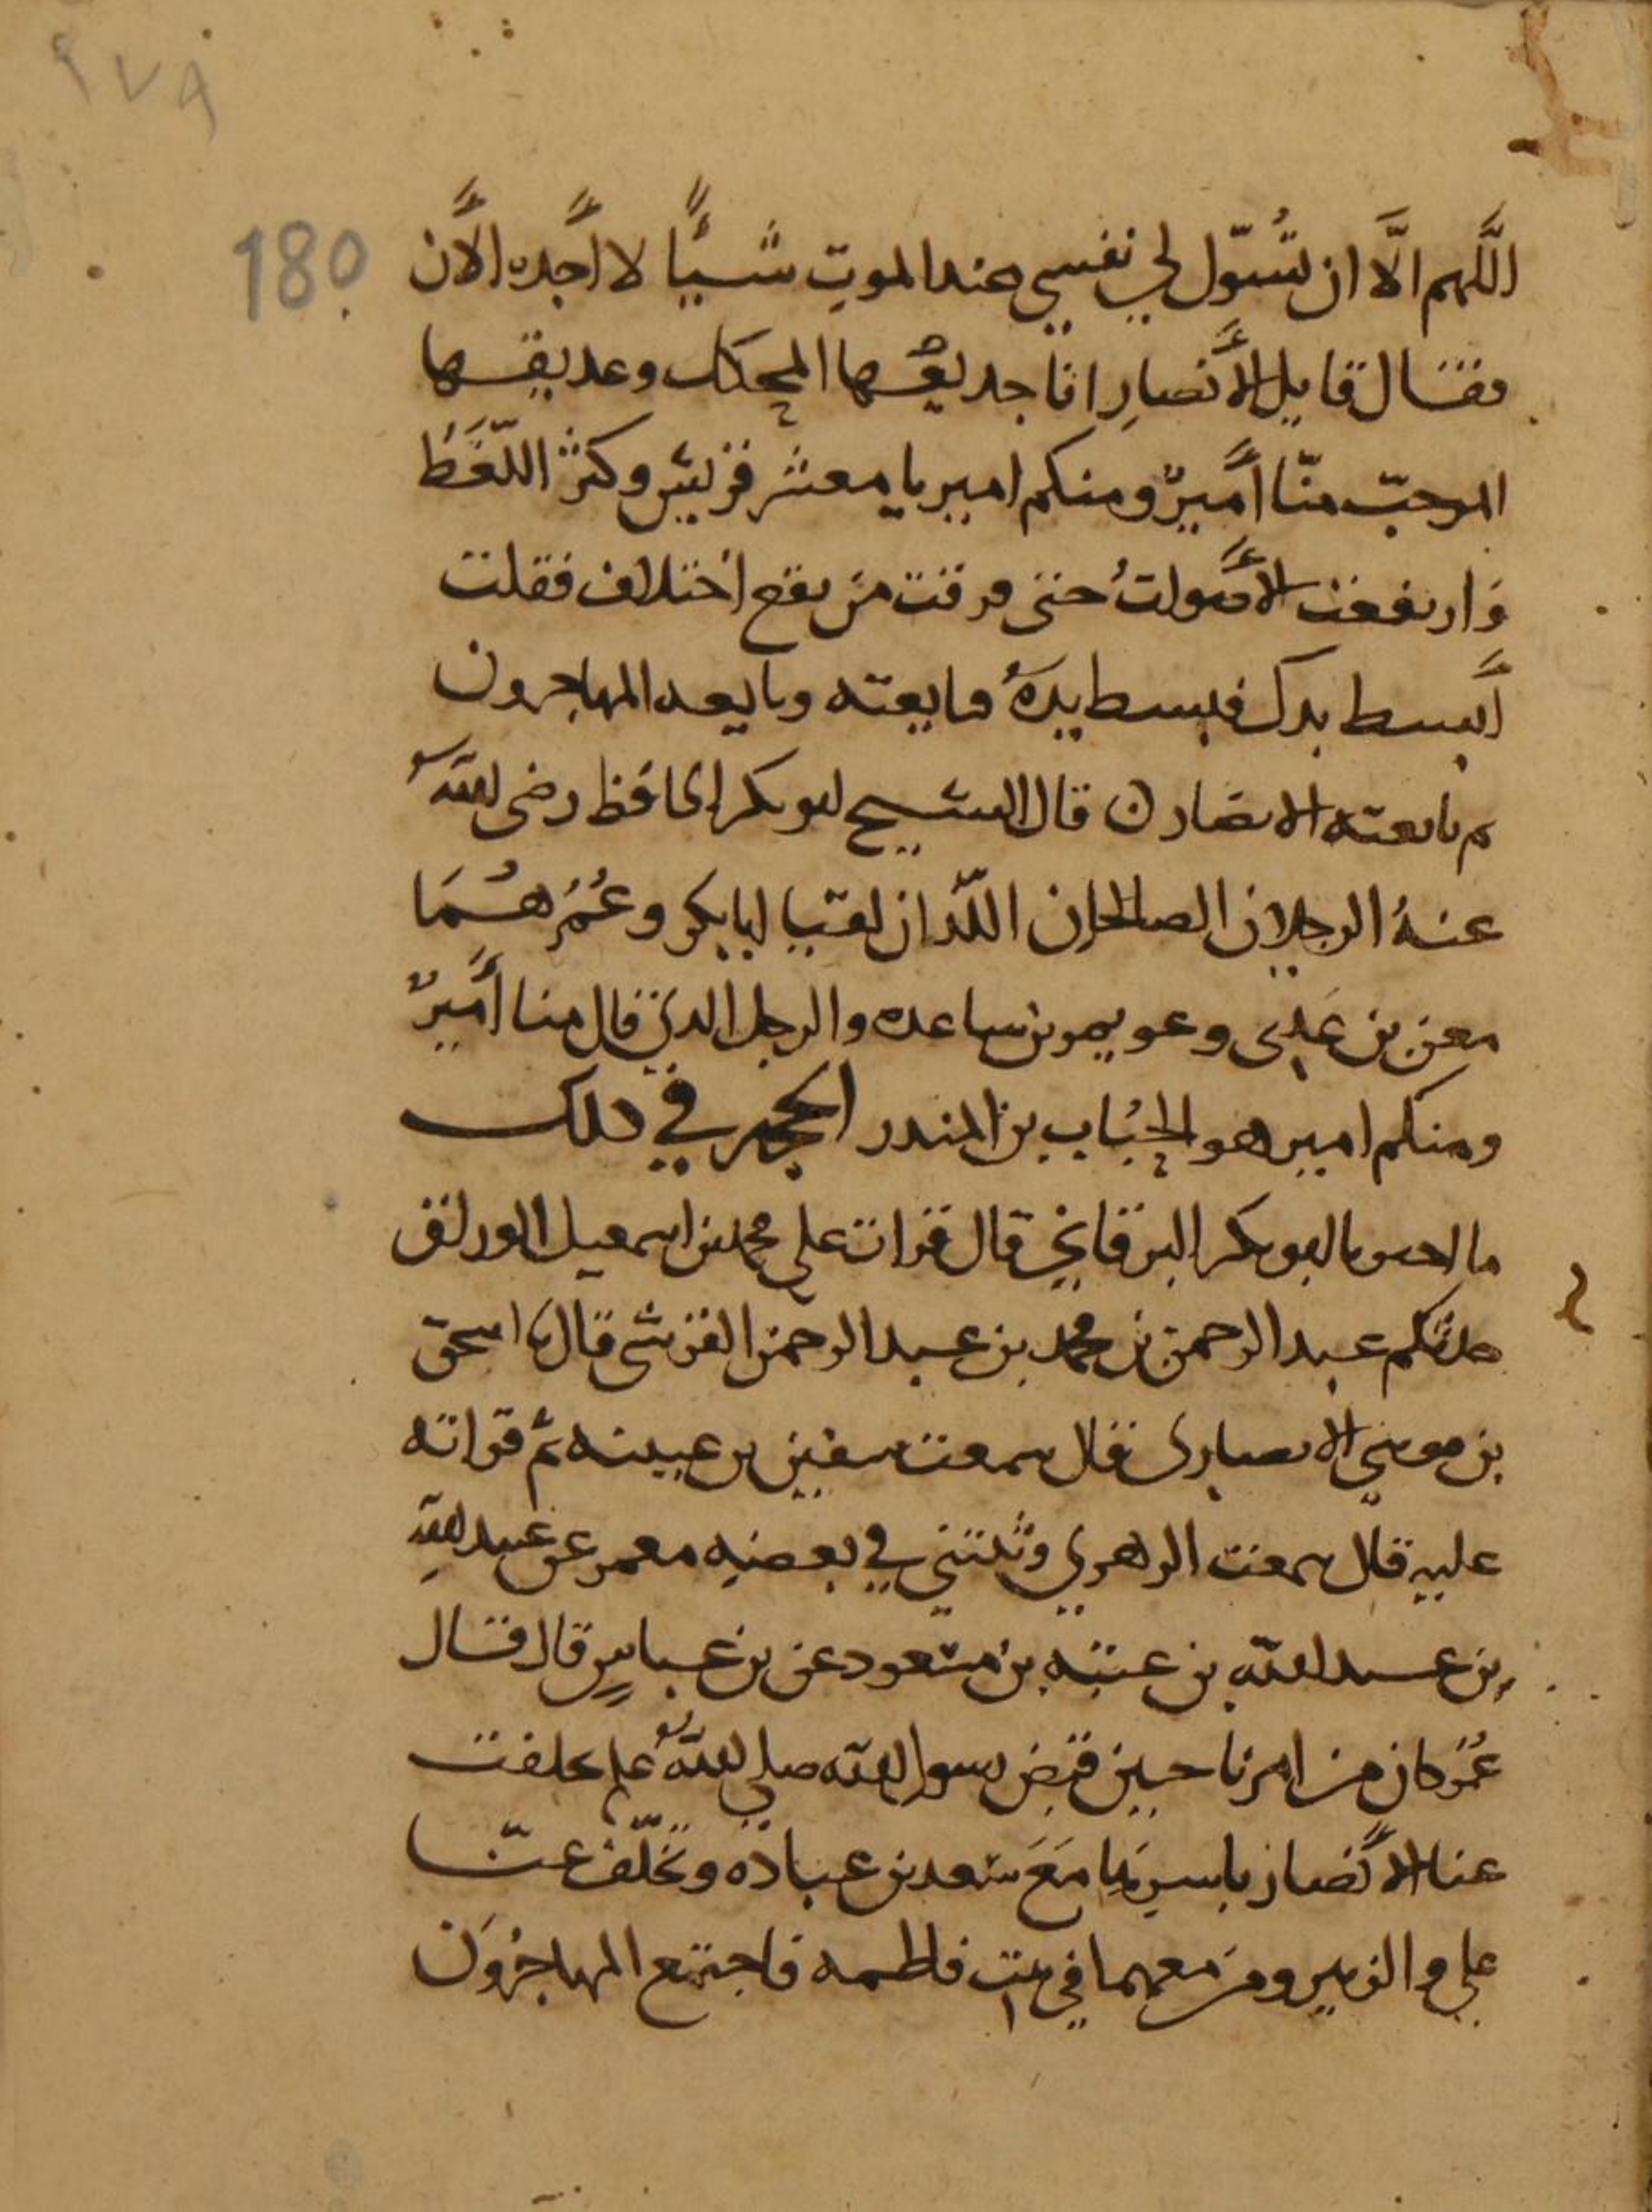 ٢٧٩
180
اللَّهم الَّا ان تسُوّل لي نفسي عند الموت شيئًا لا أجده الآن
فقال قايل الأنصارِ انا جديلها المحكك وعديقها
المرجّب منّا أميرٌ ومنكم امير يا معشر قريش وكثر اللّغَطُ
وَارتفعت الأصواتُ حتى فرقت من يقع اختلاف فقلت
أبسط يدك فبسط يدَهُ فبايعته وبايعه المهاجرون
ثم بايعته الانصار قال الشيح ابو بكر الحافظ رضى الله
عنهُ الرجلان الصالحان اللّذان لقيا ابا بكر وعُمَر هُمَا
معن بن عَدِى وعويم بن ساعده والرجل الدى قال منا أميرٌ
ومنكم امير هو الحُبَاب بن المندر الحجه في دلك
ما ابو بكر البرقاني قال قرات على محمد بن اسمعيل الوراق
حدثكم عبد الرحمن بن محمد بن عبد الرحمن القرشي قال نا اسحق
بن موسى الانصارى قال سمعت سفين بن عيينه ثم قراته
عليه قال سمعت الزهري وثبتني في بعضه معمر عن عبيد الله
بن عبد الله بن عتبه بن مسعود عن بن عباسٍ قال قال
عُمَر كان من امرنا حين قبض رسول الله صلى الله عليه تخلفت
عنا الأنصار باسرِها مَعَ سَعد بن عباده وتخلّف عنّا
علي والزبير ومن معهما في بيت فاطمه فاجتمع المهاجرُونَ